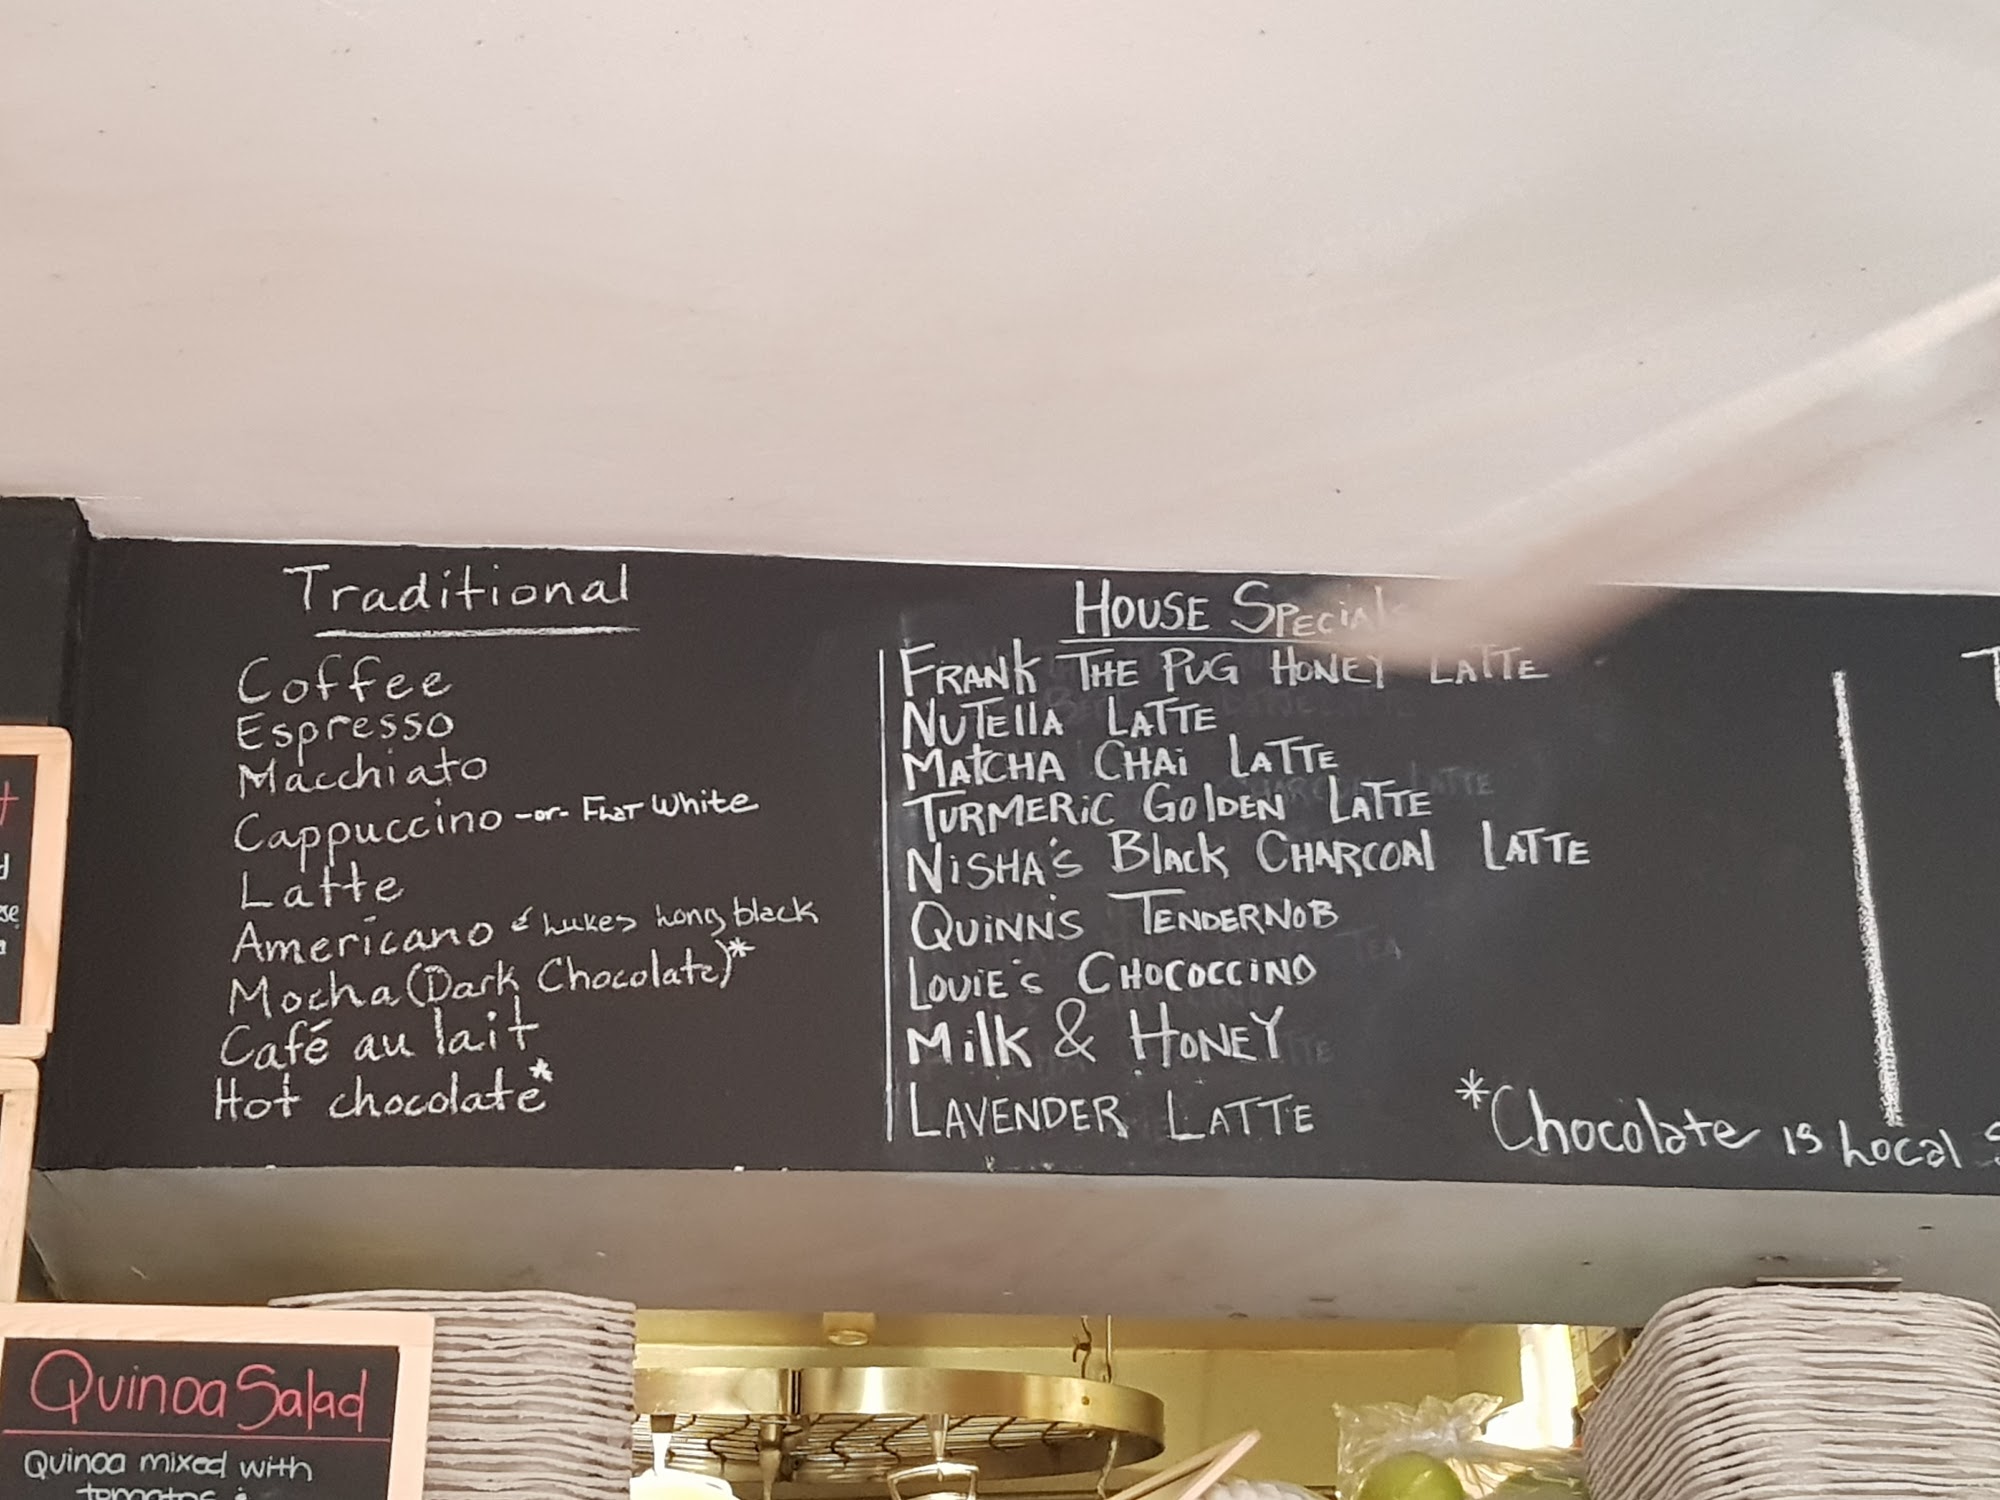 Traditional
Coffee
Espresso
Macchiato
Cappuccino -or- Flat White
Latte
Americano & Lukes Long black
Mocha (Dark Chocolate)*
Café au lait
Hot chocolate*
House Specials
Frank The Pug Honey Latte
Nutella Latte
Matcha Chai Latte
Turmeric Golden Latte
Nisha's Black Charcoal Latte
Quinn's Tendernob
Louie's Chococcino
Milk & Honey
Lavender Latte
*Chocolate is Local
Quinoa Salad
Quinoa mixed with
tomatoes